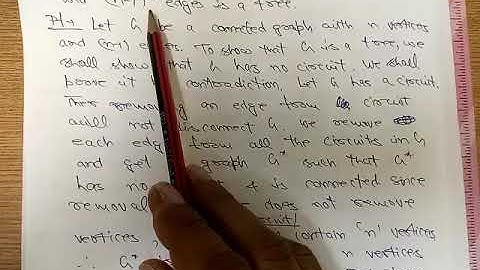 edges is a tree.
Pf → Let G be a connected graph with n vertices
and (n-1) edges. To show that G is a tree, we
shall show that G has no circuit. We shall
prove it by contradiction. Let G has a circuit.
Then removing an edge from circuit
will not disconnect G. we remove
each edge from all the circuits in G
and get graph G* such that G*
has no & is connected since
removal does not remove
vertices contain 'n' vertices
∴ G* n vertices